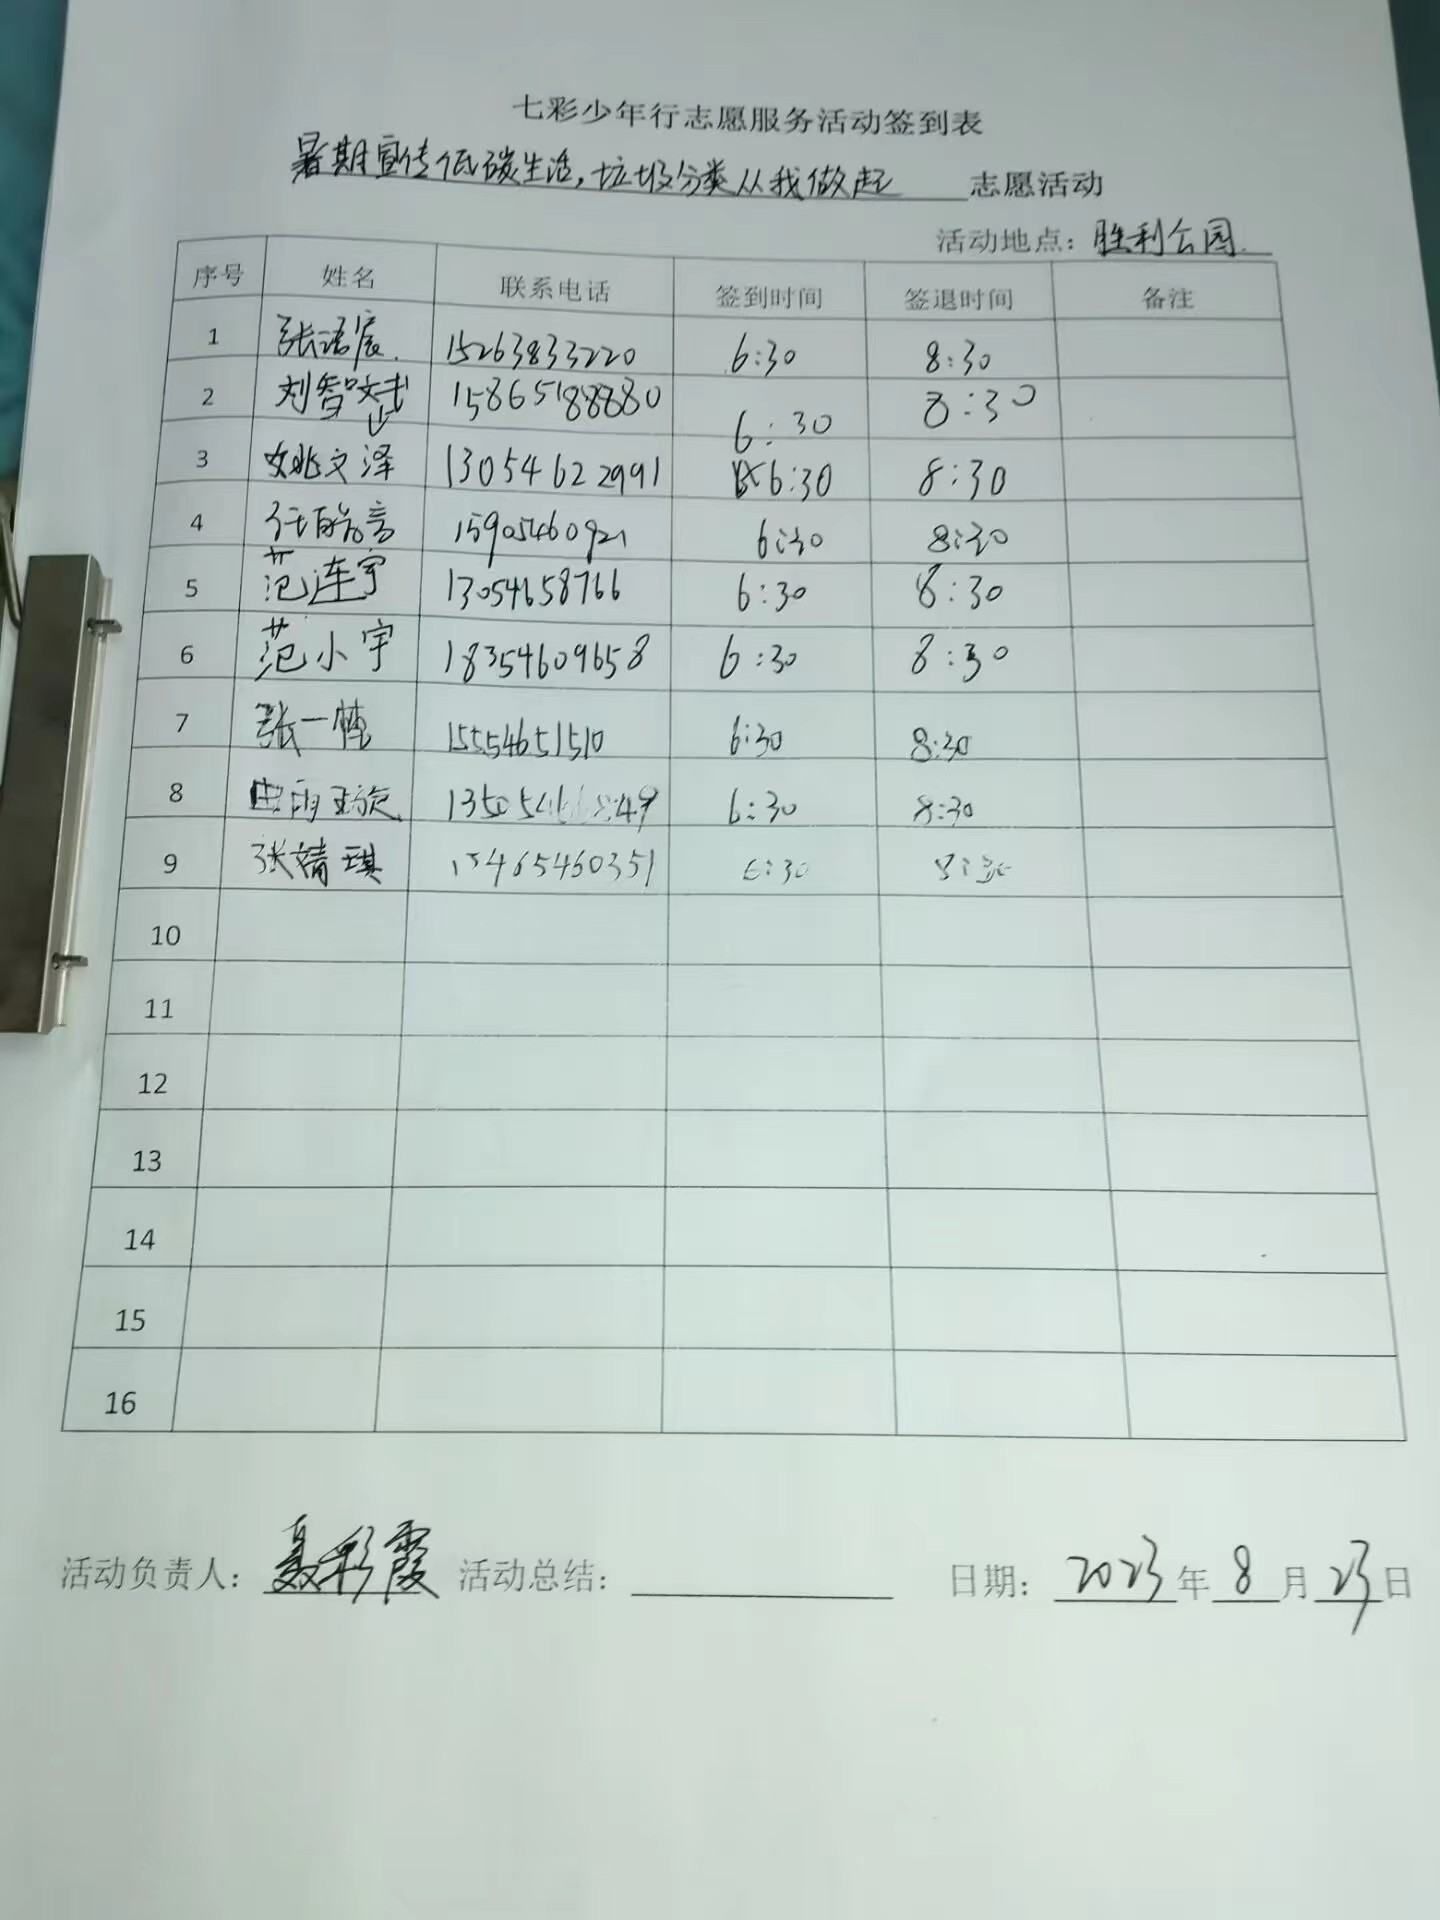 七彩少年行志愿服务活动签到表
暑期宣传低碳生活，垃圾分类从我做起 志愿活动
活动地点：胜利公园
序号 姓名 联系电话 签到时间 签退时间 备注
1 张语宸 15263833220 6:30 8:30
2 刘智 15865188880 6:30 8:30
3 姚文泽 13054622991 6:30 8:30
4 15905460921 6:30 8:30
5 范连宇 13054658766 6:30 8:30
6 范小宇 18354609658 6:30 8:30
7 张一 15554651510 6:30 8:30
8 6:30 8:30
9 张靖琪 15465460351 6:30 8:30
10
11
12
13
14
15
16
活动负责人：聂彩霞 活动总结： 日期：2023年8月23日